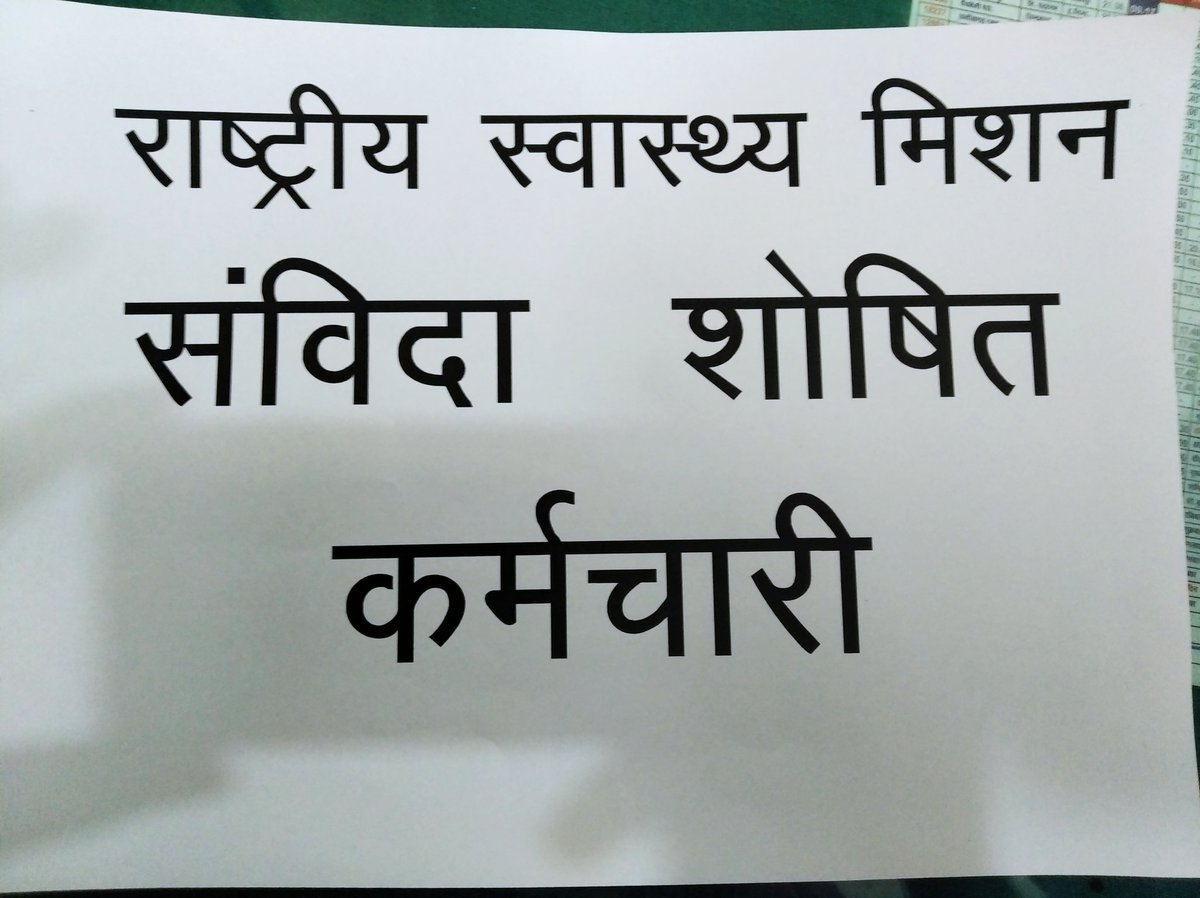 राष्ट्रीय स्वास्थ्य मिशन
संविदा शोषित
कर्मचारी